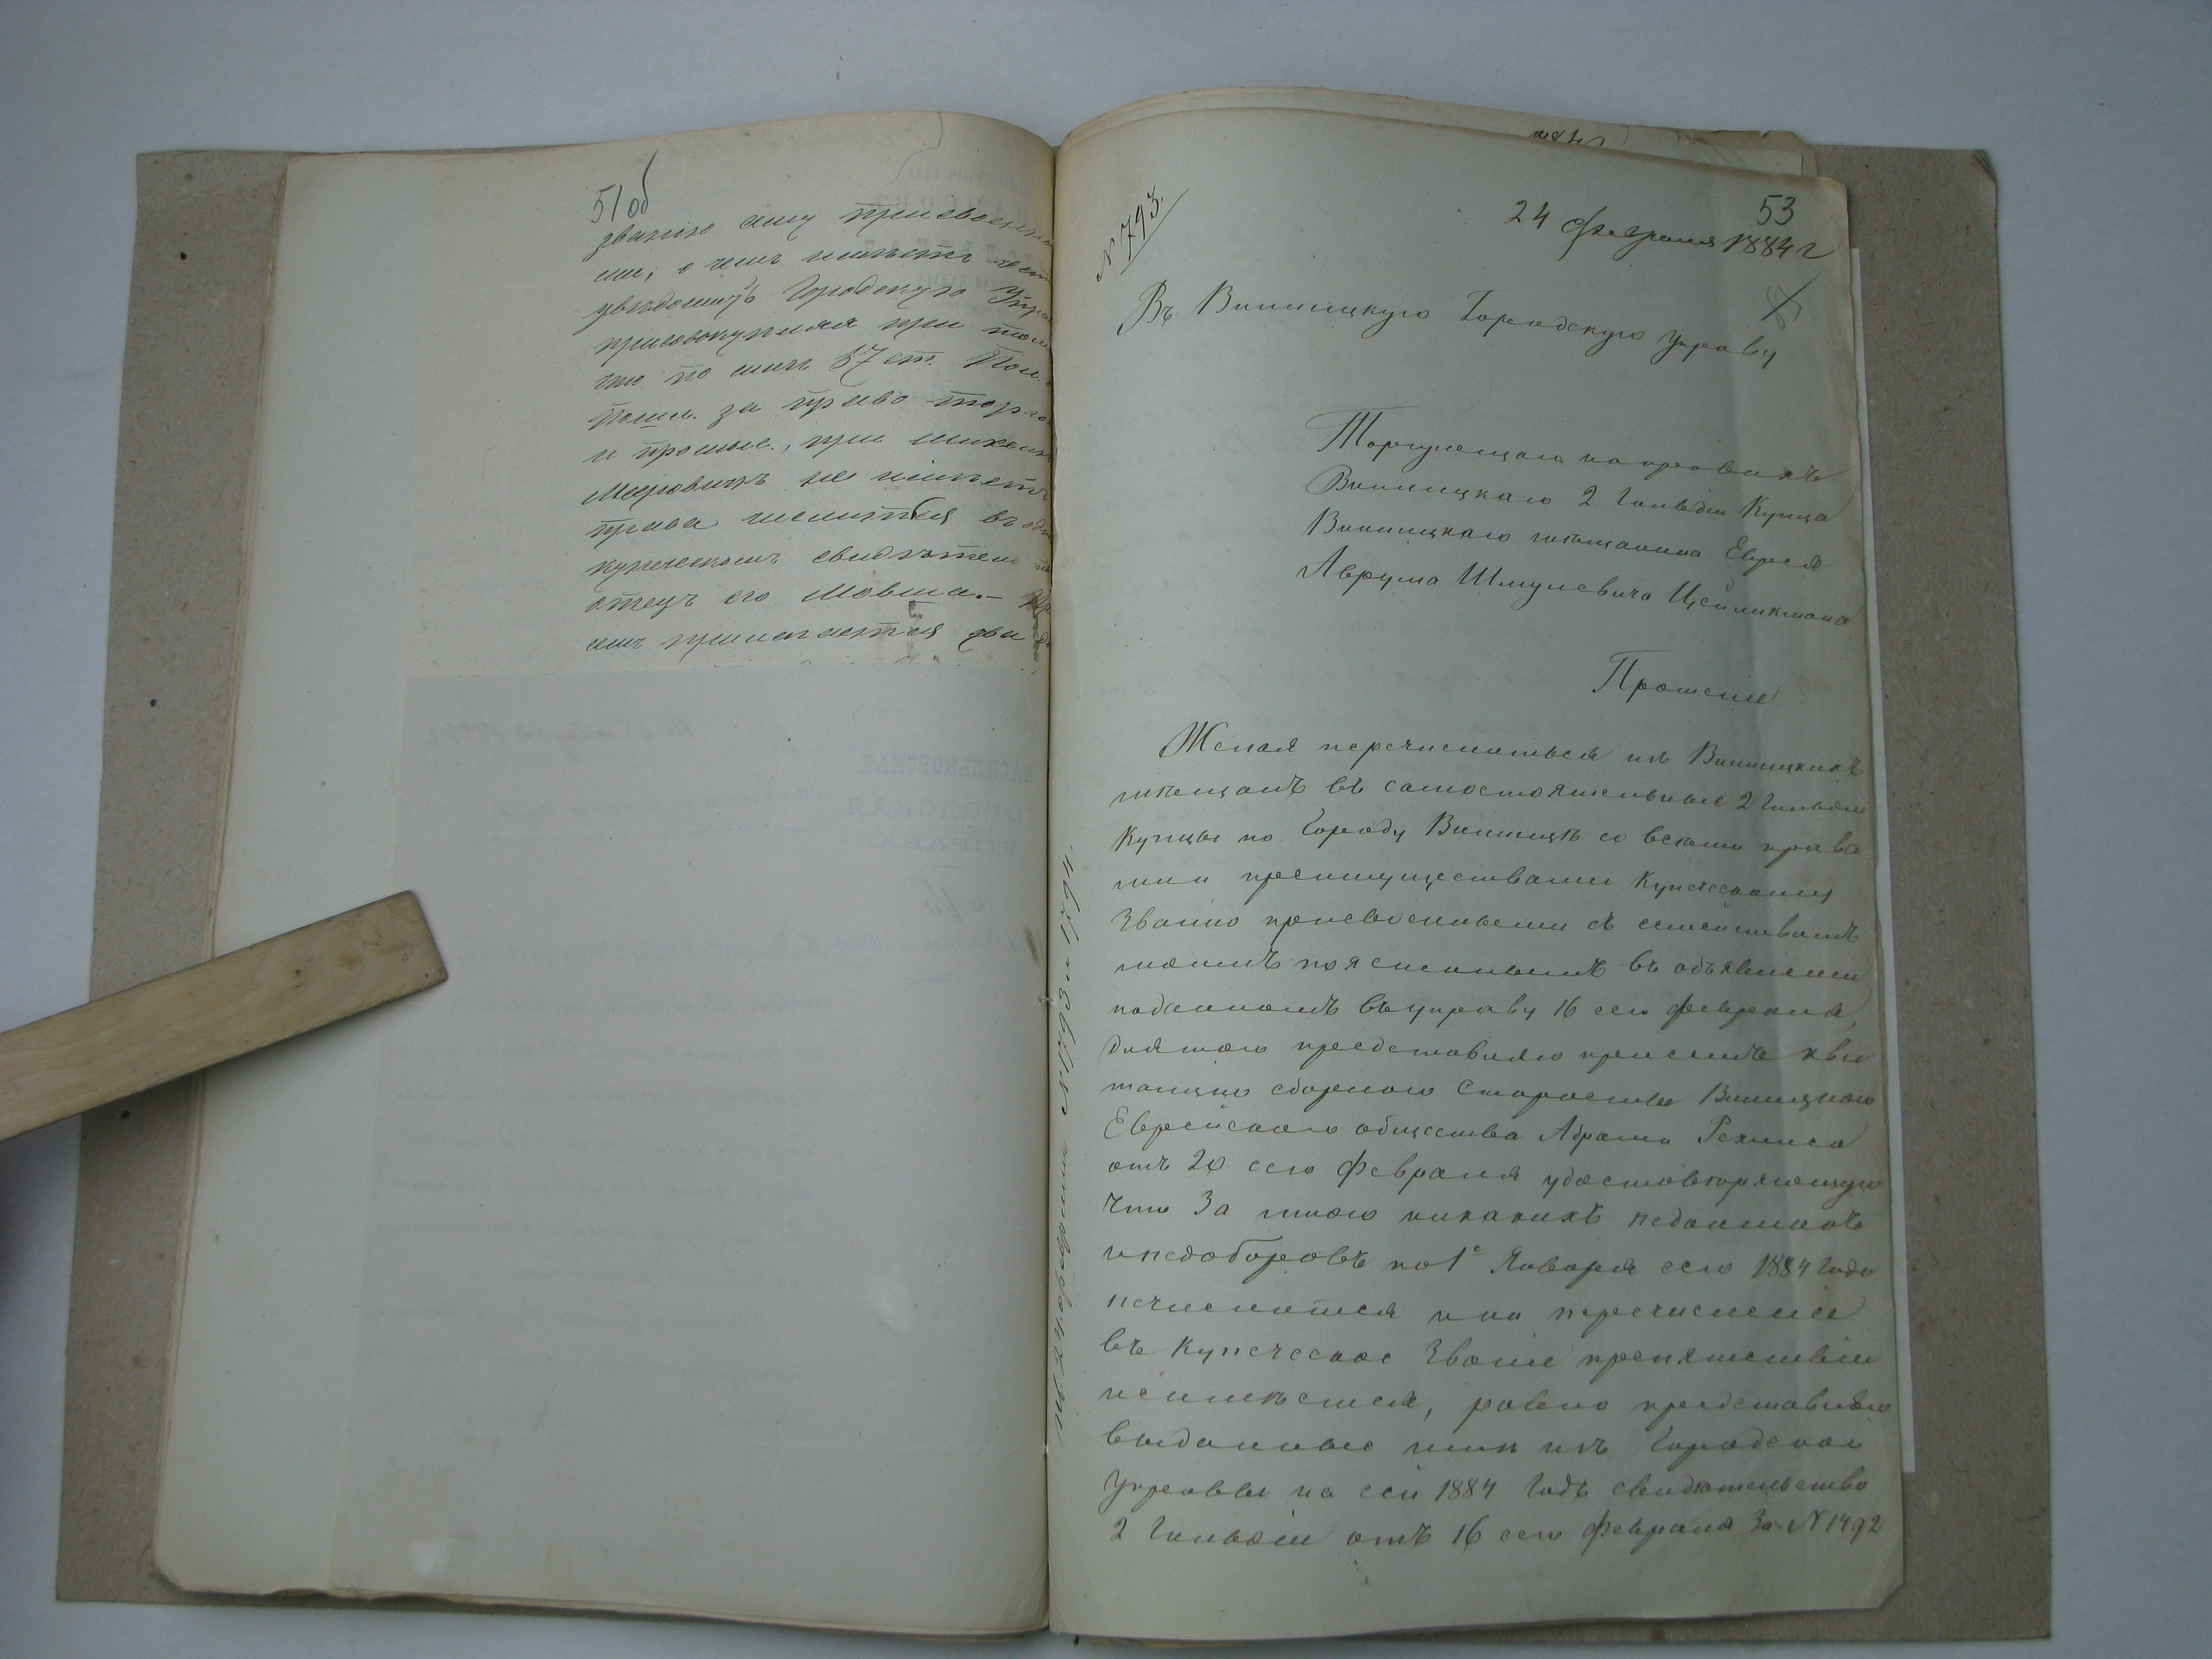 51об
званію ему присвоенны
ми, о чемъ имѣетъ чест
увѣдомить Городскую Упра
присовокупляя при том
что по силѣ 57 ст. Пол. о
пошл. за право торго
и промыс., при
Мееровичъ не имѣетъ
права числиться въ одн
купеческомъ свидѣтел
отецъ его Мовша.-
емъ прилагается два
N 793.
53
24 Февраля 1884 г
Въ Винницкую Городскую Управу
Торгующаго на правахъ
Винницкаго 2 Гильдіи Купца
Винницкаго мѣщанина Еврея
Аврума Шмулевича Цейликмана
Прошеніе
Желая перечислиться изъ Винницкихъ
мѣщанъ въ самостоятельные 2 Гильдіи
Купцы по Городу Винницѣ со всѣми права
ми и преимуществами Купеческому
Званію присвоенными съ семействомъ
моимъ поясненнымъ въ объявленіи
поданномъ въ управу 16 сего февраля,
для того представляю при семъ кви
танцію сборнаго Старосты Винницкаго
Еврейскаго общества Абрама
отъ 20 сего Февраля удостовѣряющую
что За мною никакихъ недоимокъ
и недоборовъ по 1е Января сего 1884 Года
нечислится и на перечисленіе
въ Купеческое Званіе препятствій
неимѣется, равно представляю
выданные мнѣ изъ Городской
Управы на сей 1884 Годъ свидѣтельство
2 Гильдіи отъ 16 сего Февраля За N 1492